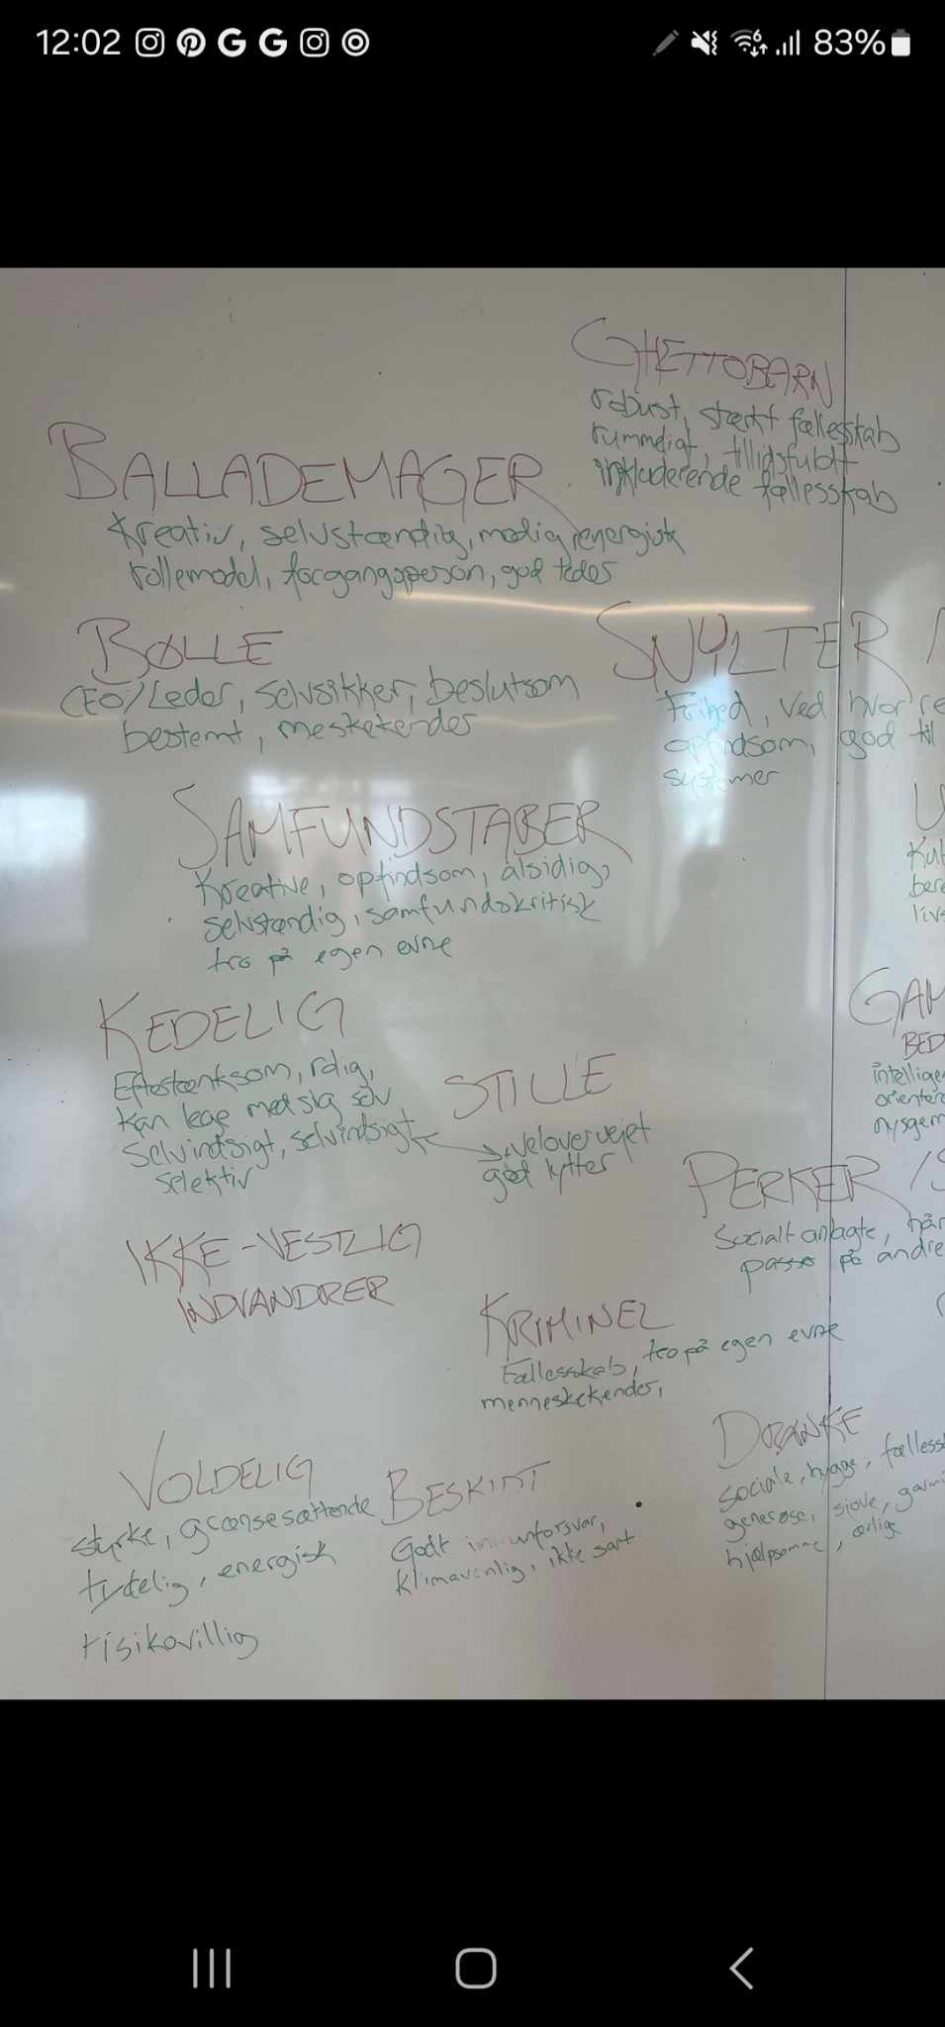 12:02
83%
GHETTOBARN
robust, stærkt fællesskab
rummeligt, tillidsfuldt
inkluderende fællesskab
BALLADEMAGER
Kreativ, selvstændig, modig, energisk
rollemodel, forgangsperson, god
BØLLE
CEO/Leder, selvsikker, beslutsom
bestemt,
SNYLTER /
Frihed, ved hvor
opfindsom, god til
systemer
SAMFUNDSTABER
Kreative, opfindsom, alsidig,
selvstændig, samfundskritisk
tro på egen evne
KEDELIG
Eftertænksom, rolig,
kan lege med sig selv
selvindsigt, selvindsigt
selektiv
STILLE
velovervejet
god lytter
IKKE-VESTLIG
INDVANDRER
PERKER /
Socialt anlagte,
passe på andre
KRIMINEL
Fællesskab, tro på egen evne
menneskekender,
VOLDELIG
styrke, grænsesættende
tydelig, energisk
risikovillig
BESKIDT
Godt immunforsvar,
klimavenlig, ikke sart
DRANKER
sociale, hygge,
generøse, sjove,
hjælpsomme, ærlige